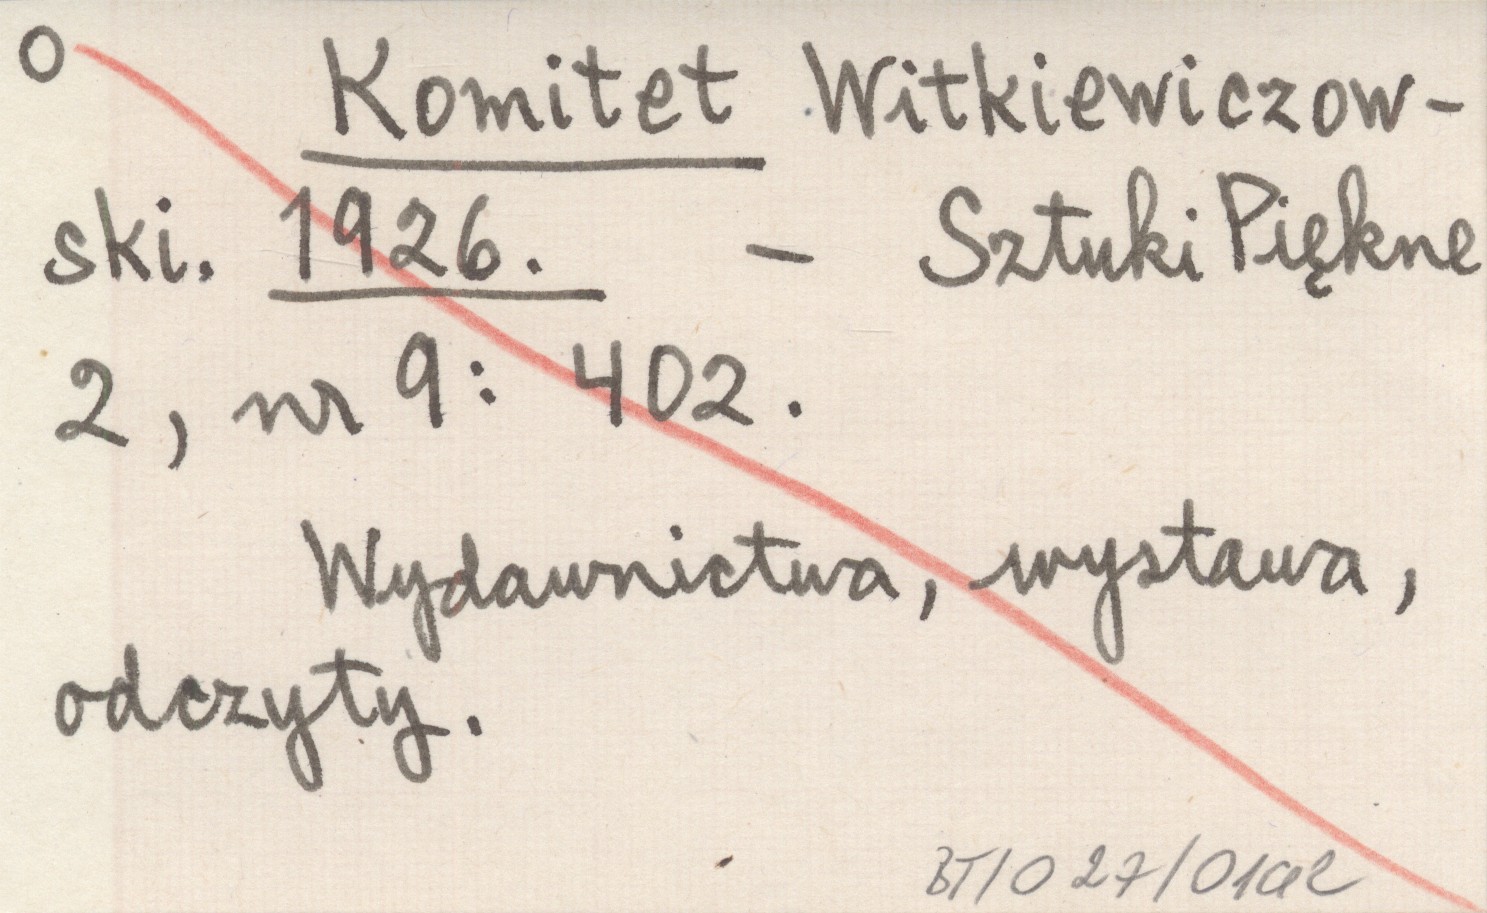 O Komitet Witkiewiczow-
ski. 1926. – Sztuki Piękne
2, nr 9: 402.
Wydawnictwa, wystawa,
odczyty.
BT/O 27/01a2